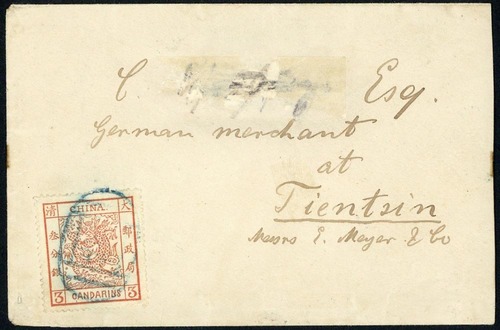 C. Esq.
German merchant
at
Tientsin
Messrs E. Meyer & Co
大 CHINA 清
郵政局
叁分銀
3 CANDARINS 3